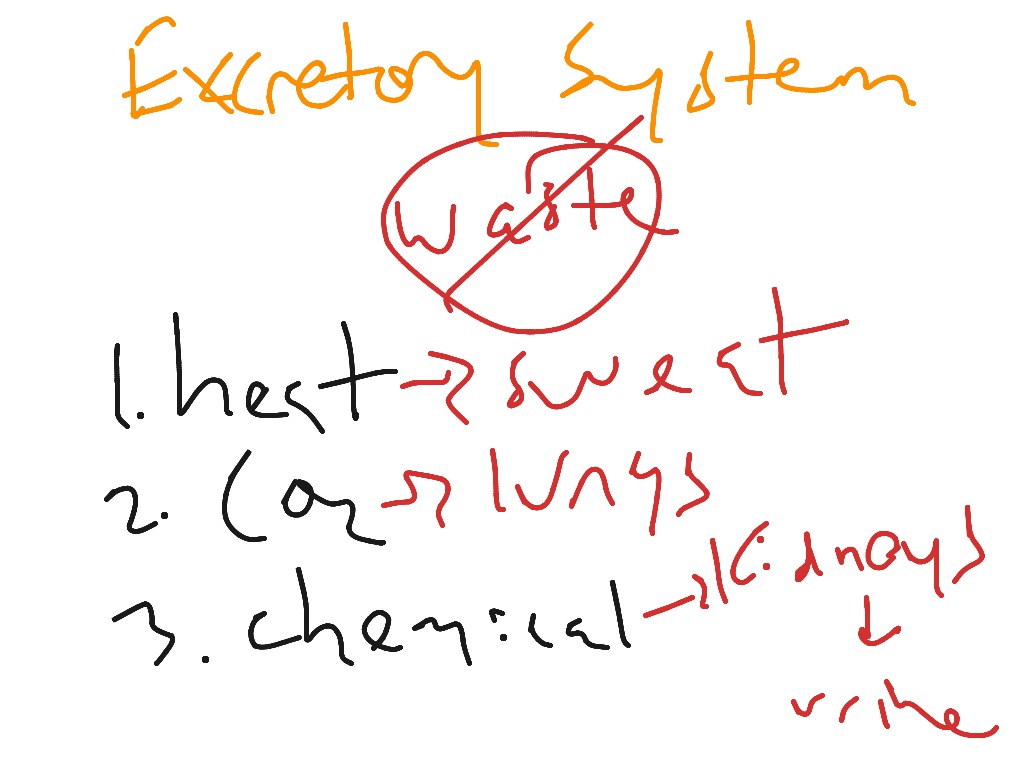 Excretory System
waste
1. heat → sweat
2. CO2 → lungs
3. chemical → Kidnays
↓
urine